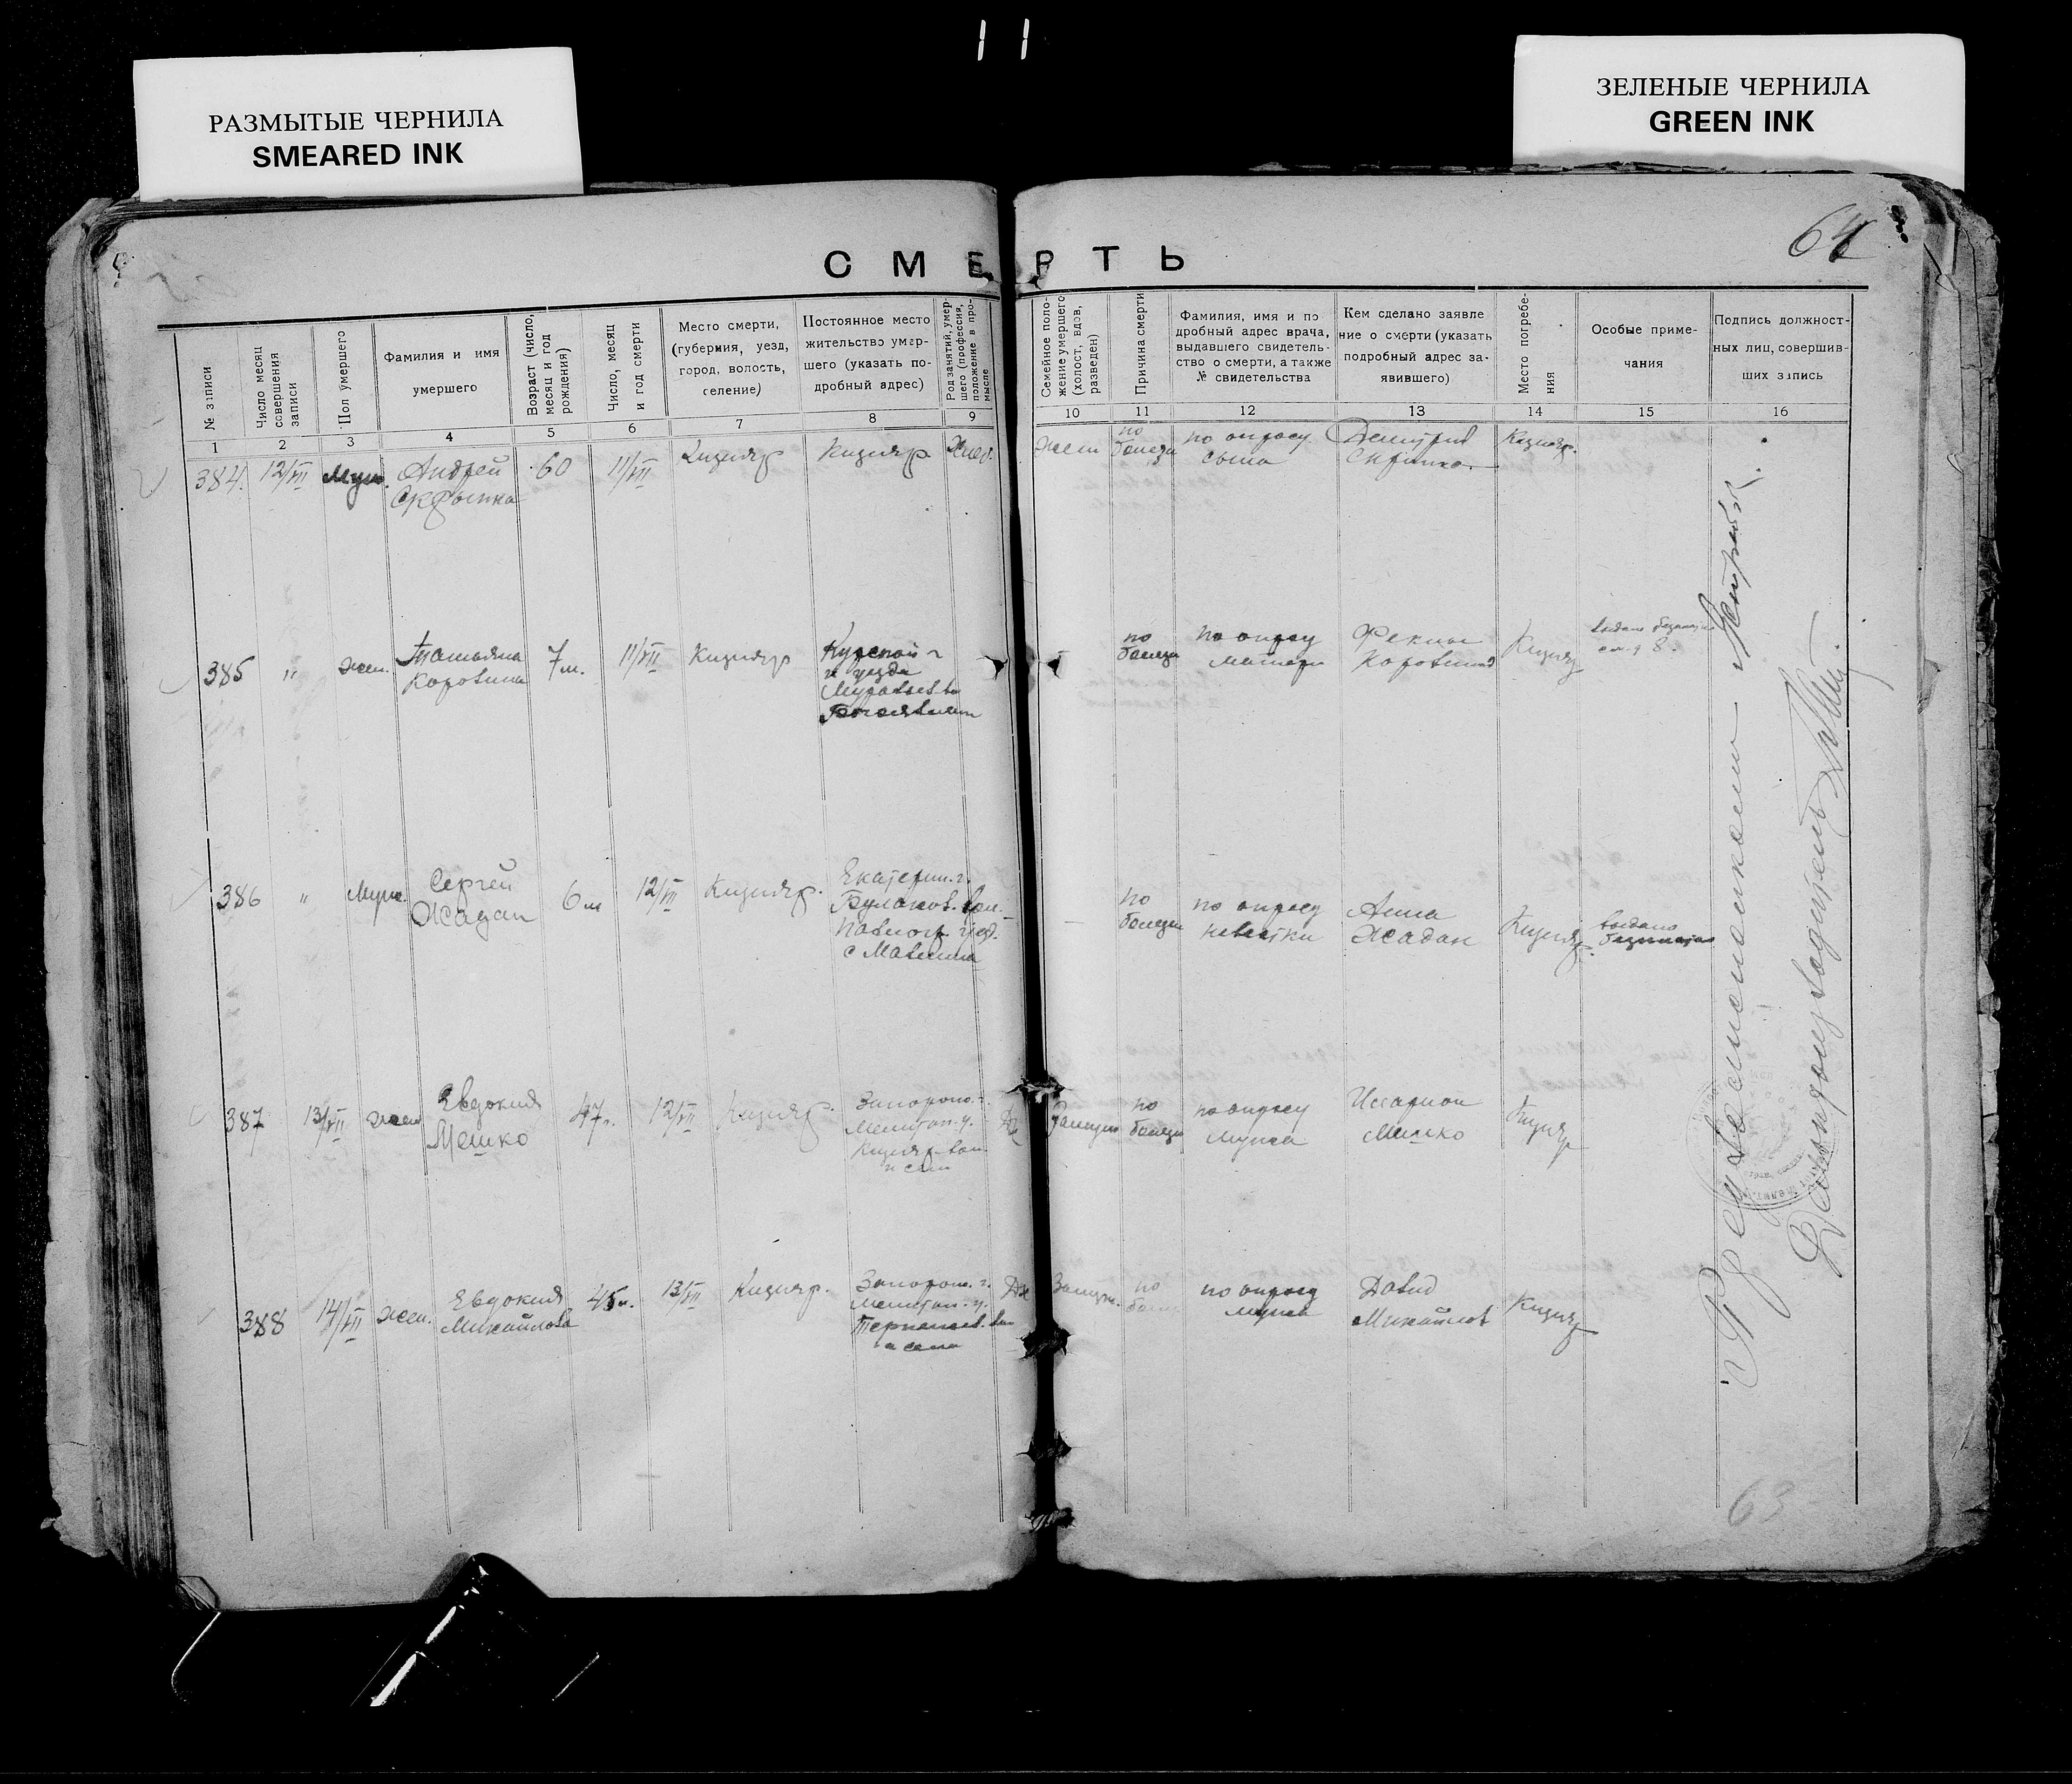 РАЗМЫТЫЕ ЧЕРНИЛА
SMEARED INK
ЗЕЛЕНЫЕ ЧЕРНИЛА
GREEN INK
64
СМЕРТЬ
№ записи
Число месяц совершения записи
Пол умершего
Фамилия и имя умершего
Возраст (число, месяц и год рождения)
Число, месяц и год смерти
Место смерти, (губерния, уезд, город, волость, селение)
Постоянное место жительство умершего (указать подробный адрес)
Род занятий, умершего (профессия, положение в промысле
Семейное положение умершего (холост, вдов, разведен)
Причина смерти
Фамилия, имя и подробный адрес врача, выдавшего свидетельство о смерти, а также № свидетельства
Кем сделано заявление о смерти (указать подробный адрес заявившего)
Место погребения
Особые примечания
Подпись должностных лиц, совершивших запись
1 2 3 4 5 6 7 8 9 10 11 12 13 14 15 16
384. 12/VII Муж. Андрей 60 11/VII Кизияр Кизияр по болезн по опросу сына Дмитрий Кизияр.
385 " жен. Татьяна Коровина 7 м. 11/VII Кизияр Курской г. и уезда по болезн по опросу матери Феклы Кизияр
386 " Муж. Сергей Жадан 6 м 12/VII Кизияр. Екатерин. г. Павлогр. уезд. по болезн по опросу невестки Анна Жадан Кизияр. выдано
387 13/VII жен Евдокия Мешко 47 л. 12/VII Кизияр. Запорож. г. Мелитоп. у. Кизияр. вол. и село по болезн по опросу мужа Иссарион Мешко Кизияр
388 14/VII жен. Евдокия Михайлова 45 л. 13/VII Кизияр. Запорож. г. Мелитоп. у. Терпеньев. вол и село Замуж. по болезн по опросу мужа Давид Михайлов Кизияр
63